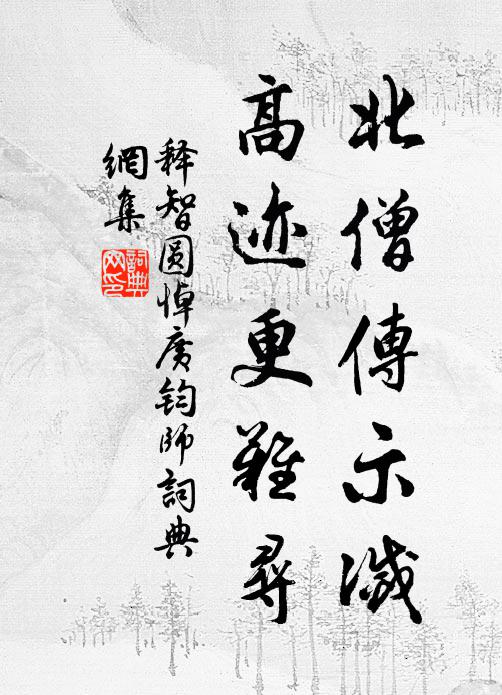 北僧傳示滅
高迹更難尋
释智圆悼广钧师詞典
網集
詞典網印